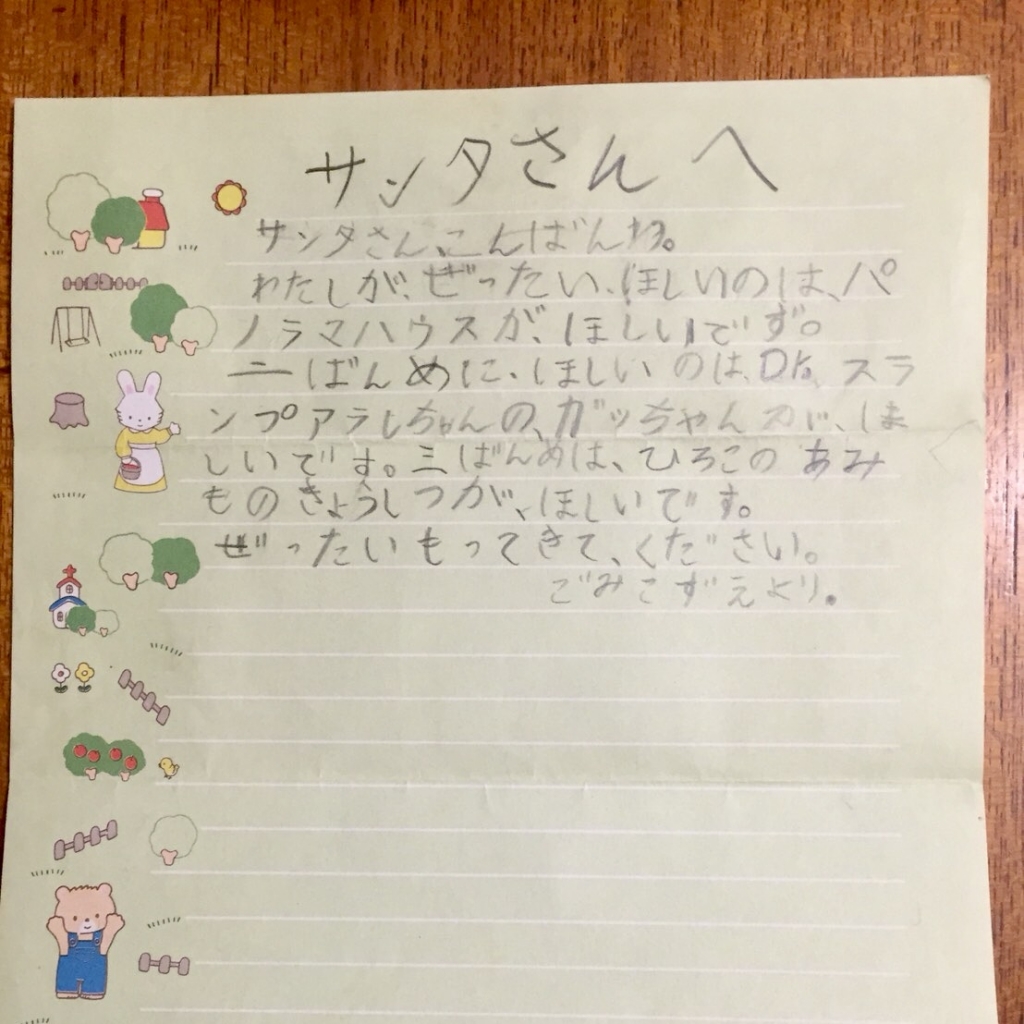 サンタさんへ
サンタさん、こんばんわ。
わたしが、ぜったい、ほしいのは、パ
ノラマハウスが、ほしいです。
二ばんめに、ほしいのは、Dr、スラ
ンプアラレちゃんの、ガッちゃんが、ほ
しいです。三ばんめは、ひろこの あみ
ものきょうしつが、ほしいです。
ぜったいもってきて、ください。
ごみこずえより。